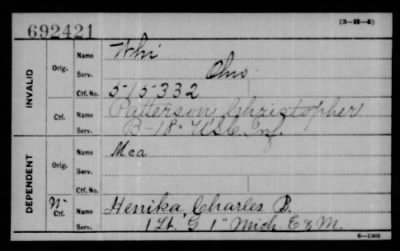 692421
(3-H-4)
INVALID
Orig.
Name
Whi
Serv.
Ohio
Ctf. No.
515332
Ctf.
Name
Patterson, Christopher
Serv.
B-18" U.S.C. Inf.
DEPENDENT
Orig.
Name
Mca
Serv.
Ctf. No.
W-
Ctf.
Name
Henika, Charles B.
Serv.
1 Lt. G 1" Mich. E & M.